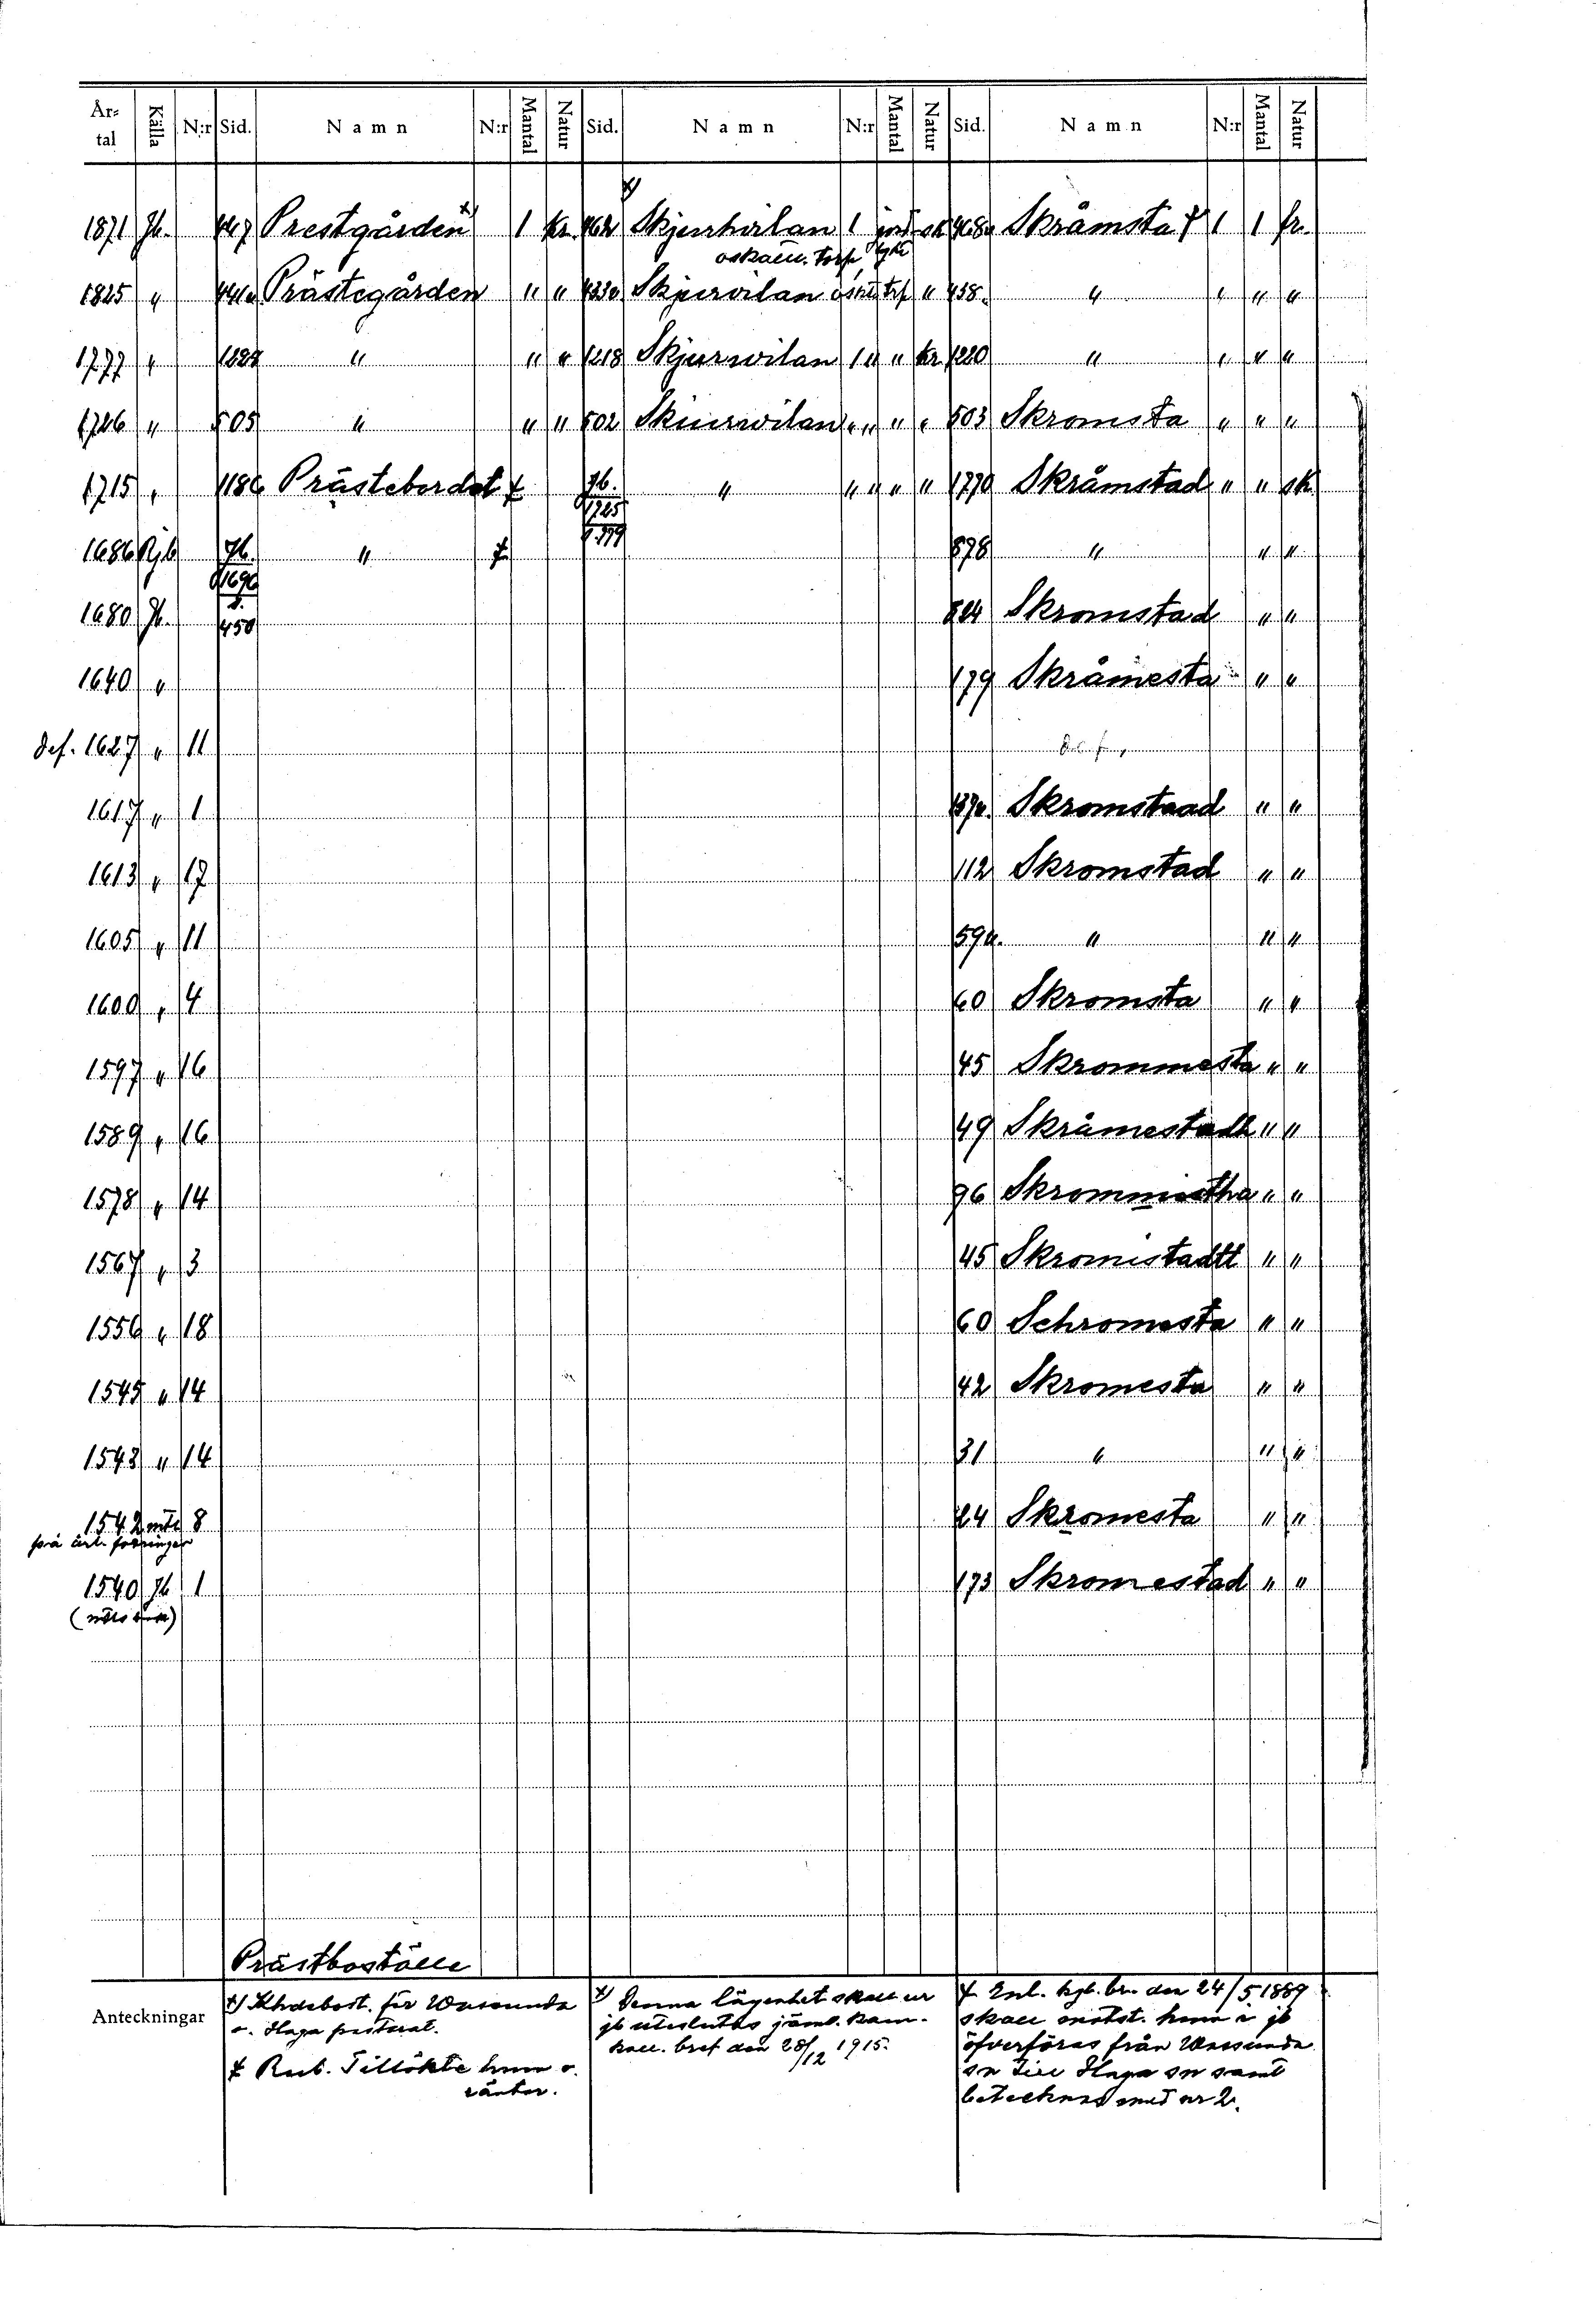 År-tal Källa N:r Sid. Namn N:r Mantal Natur Sid. Namn N:r Mantal Natur Sid. Namn N:r Mantal Natur
1871 Jb. 447 Prestgården x) 1 kr. x) Skjurhvilan 1 sk Skråmsta ⨍ 1 1 fr.
oskatt. torp
1825 " Prästegården " " Skjurvilan trp " 438. " " " "
1777 " " " " 1218 Skjurwilan 1 " " kr 1220 " " " "
1746 " 505 " " " 502 Skiurwilan " " " " 503 Skromsta " " "
1715 " 1186 Prästebordet ⨍ Jb. 1725 " " " " " 1770 Skråmstad " " sk
1686 Rjb Jb. 1696 " ⨍ 878 " " "
1680 Jb. s. 450 824 Skromstad " "
1640 " 179 Skråmesta " "
def. 1627 " 11
1617 " 1 Skromstaad " "
1613 " 17 112 Skromstad " "
1605 " 11 " " "
1600 " 4 60 Skromsta " "
1597 " 16 45 Skrommesta " "
1589 " 16 49 Skråmestadh " "
1578 " 14 96 Skrommistha " "
1567 " 3 45 Skromistadtt " "
1556 " 18 60 Schromesta " "
1545 " 14 42 Skromesta " "
1543 " 14 31 " " "
1542 mtl 8 24 Skromesta " "
1540 Jb 1 173 Skromestad " "
Prästboställe
Anteckningar
x) Khdebost. för Wassunda
o. Haga pastorat.
⨍ Rub. Tillökte hmn o.
räntor.
x) Denna lägenhet skall ur
jb uteslutas jäml. kam.
koll. bref den 28/12 1915.
⨍ Enl. kgl. br. den 24/5 1889
skall motst. hmn i jb
öfverföras från Wassunda
sn till Haga sn samt
betecknas med nr 2.